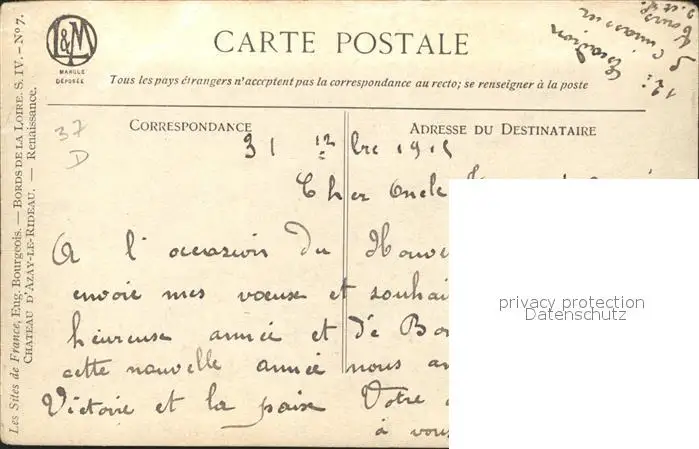 L&M
MARQUE
DÉPOSÉE
CARTE POSTALE
Tous les pays étrangers n'acceptent pas la correspondance au recto; se renseigner à la poste
CORRESPONDANCE
ADRESSE DU DESTINATAIRE
Les Sites de France, Eug. Bourgeois. — BORDS DE LA LOIRE. S. IV. — N° 7.
CHATEAU D'AZAY-LE-RIDEAU. — Renaissance.
37
D
31 12bre 1915
Cher Oncle
A l'occasion du Nouve
envoie mes voeuse et souhai
heureuse année et de Bon
cette nouvelle année nous
Victoire et la paix Votre
à vous
privacy protection
Datenschutz